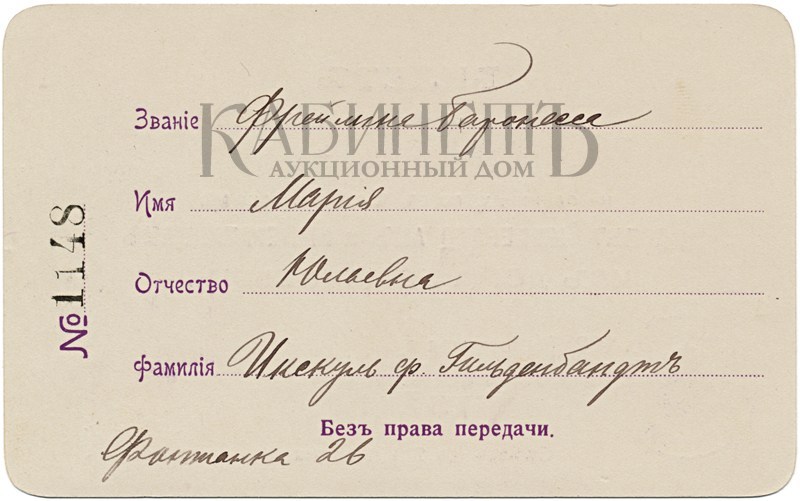 Званіе Фрейлина Баронесса
КАБИНЕТЪ
АУКЦИОННЫЙ ДОМ
Имя Марія
Отчество Юльевна
Фамилія Икскуль ф. Гильденбандтъ
Безъ права передачи.
Фонтанка 26
№ 1148